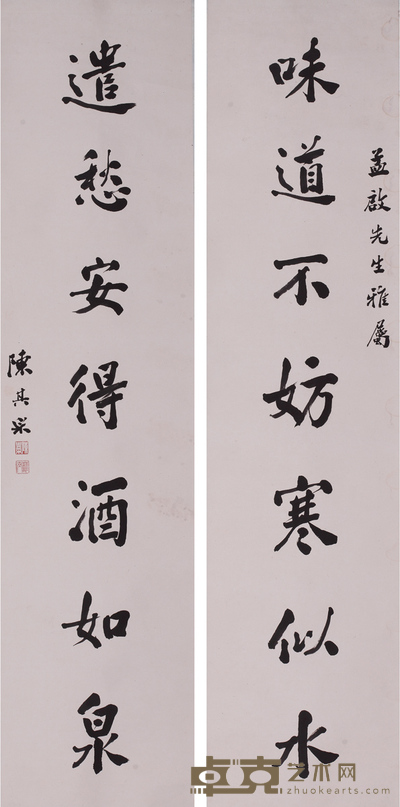 孟啟先生雅屬
味道不妨寒似水
遣愁安得酒如泉
陳其采
卓克艺术网
zhuokearts.com